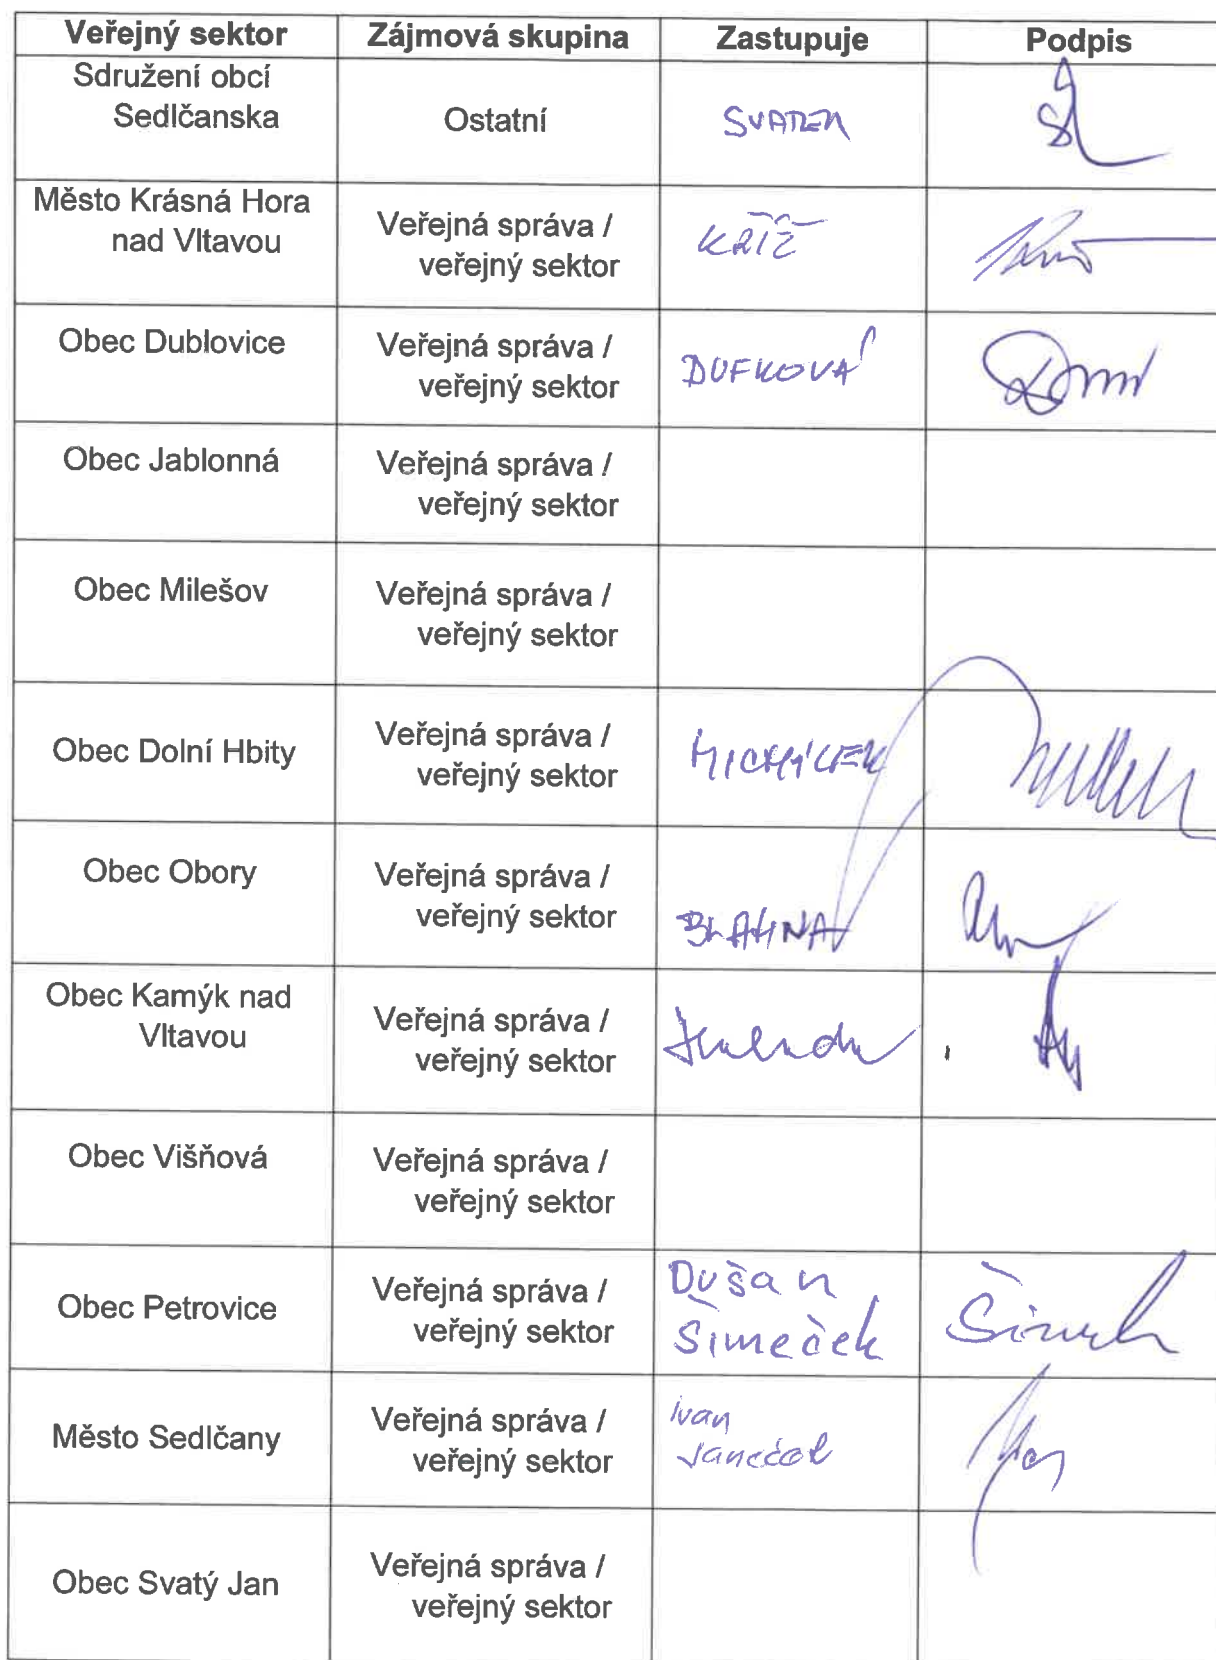 Veřejný sektor Zájmová skupina Zastupuje Podpis
Sdružení obcí
Sedlčanska
Ostatní
SVATEK
Město Krásná Hora
nad Vltavou
Veřejná správa /
veřejný sektor
KŘÍŽ
Obec Dublovice
Veřejná správa /
veřejný sektor
DUFKOVÁ
Obec Jablonná
Veřejná správa /
veřejný sektor
Obec Milešov
Veřejná správa /
veřejný sektor
Obec Dolní Hbity
Veřejná správa /
veřejný sektor
Obec Obory
Veřejná správa /
veřejný sektor
BLAHNA
Obec Kamýk nad
Vltavou
Veřejná správa /
veřejný sektor
Obec Višňová
Veřejná správa /
veřejný sektor
Obec Petrovice
Veřejná správa /
veřejný sektor
Dušan
Šimeček
Město Sedlčany
Veřejná správa /
veřejný sektor
Ivan
Janeček
Obec Svatý Jan
Veřejná správa /
veřejný sektor